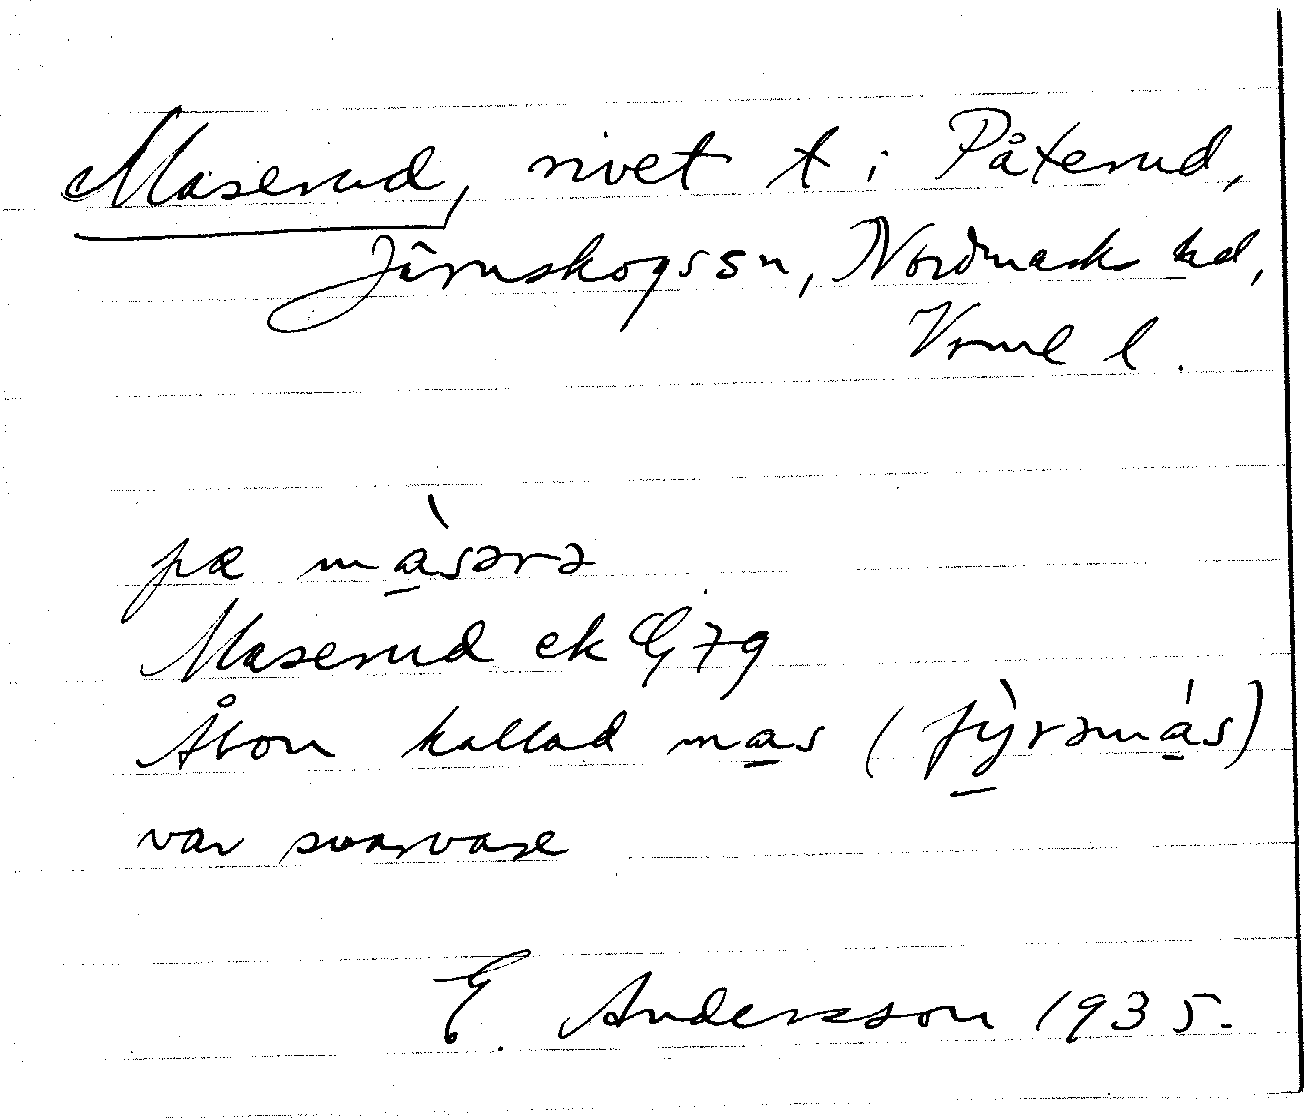 Maserud, rivet t i Påterud,
Järnskogssn, Nordmark hd,
Vrml l.
pæ mа̀sərə
Maserud ek G 79
Åbon kallad mas (fỳrəmás)
var svarvare
E. Andersson 1935.